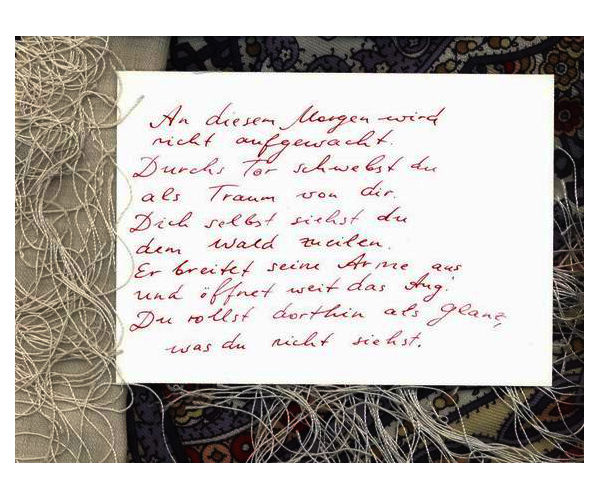 An diesem Morgen wird
nicht aufgewacht.
Durchs Tor schwebst du
als Traum von dir.
Dich selbst siehst du
dem Wald zueilen.
Er breitet seine Arme aus
und öffnet weit das Aug'.
Du rollst dorthin als Glanz,
was du nicht siehst.